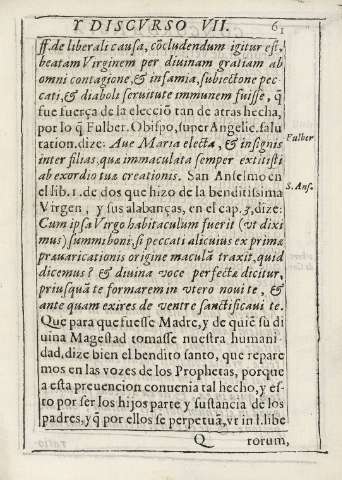 Y DISCVRSO VII. 61
ff. de liberali causa, cõcludendum igitur est,
beatam Virginem per diuinam gratiam ab
omni contagione, & infamia, subiectione pec
cati, & diaboli seruitute immunem fuisse, q̃
fue fuerça de la elecciõ tan de atras hecha,
por lo q̃ Fulber. Obispo, super Angelic. salu
tation. dize: Aue Maria electa, & insignis
Fulber
inter filias, quæ immaculata semper extitisti
ab exordio tuæ creationis. San Anselmo en
el lib. 1. de dos que hizo de la benditissima
S. Ans.
Virgen, y sus alabanças, en el cap. 3. dize:
Cum ipsa Virgo habitaculum fuerit (vt dixi
mus) summi boni, si peccati alicuius ex primæ
præuaricationis origine maculã traxit, quid
dicemus? & diuina voce perfecta dicitur,
priusquã te formarem in vtero noui te, &
ante quam exires de ventre sanctificaui te.
Que para que fuesse Madre, y de quiẽ su di
uina Magestad tomasse nuestra humani-
dad, dize bien el bendito santo, que repare
mos en las vozes de los Prophetas, porque
a esta preuencion conuenia tal hecho, y es-
to por ser los hijos parte y sustancia de los
padres, y q̃ por ellos se perpetuã, vt in l. libe
Q rorum,